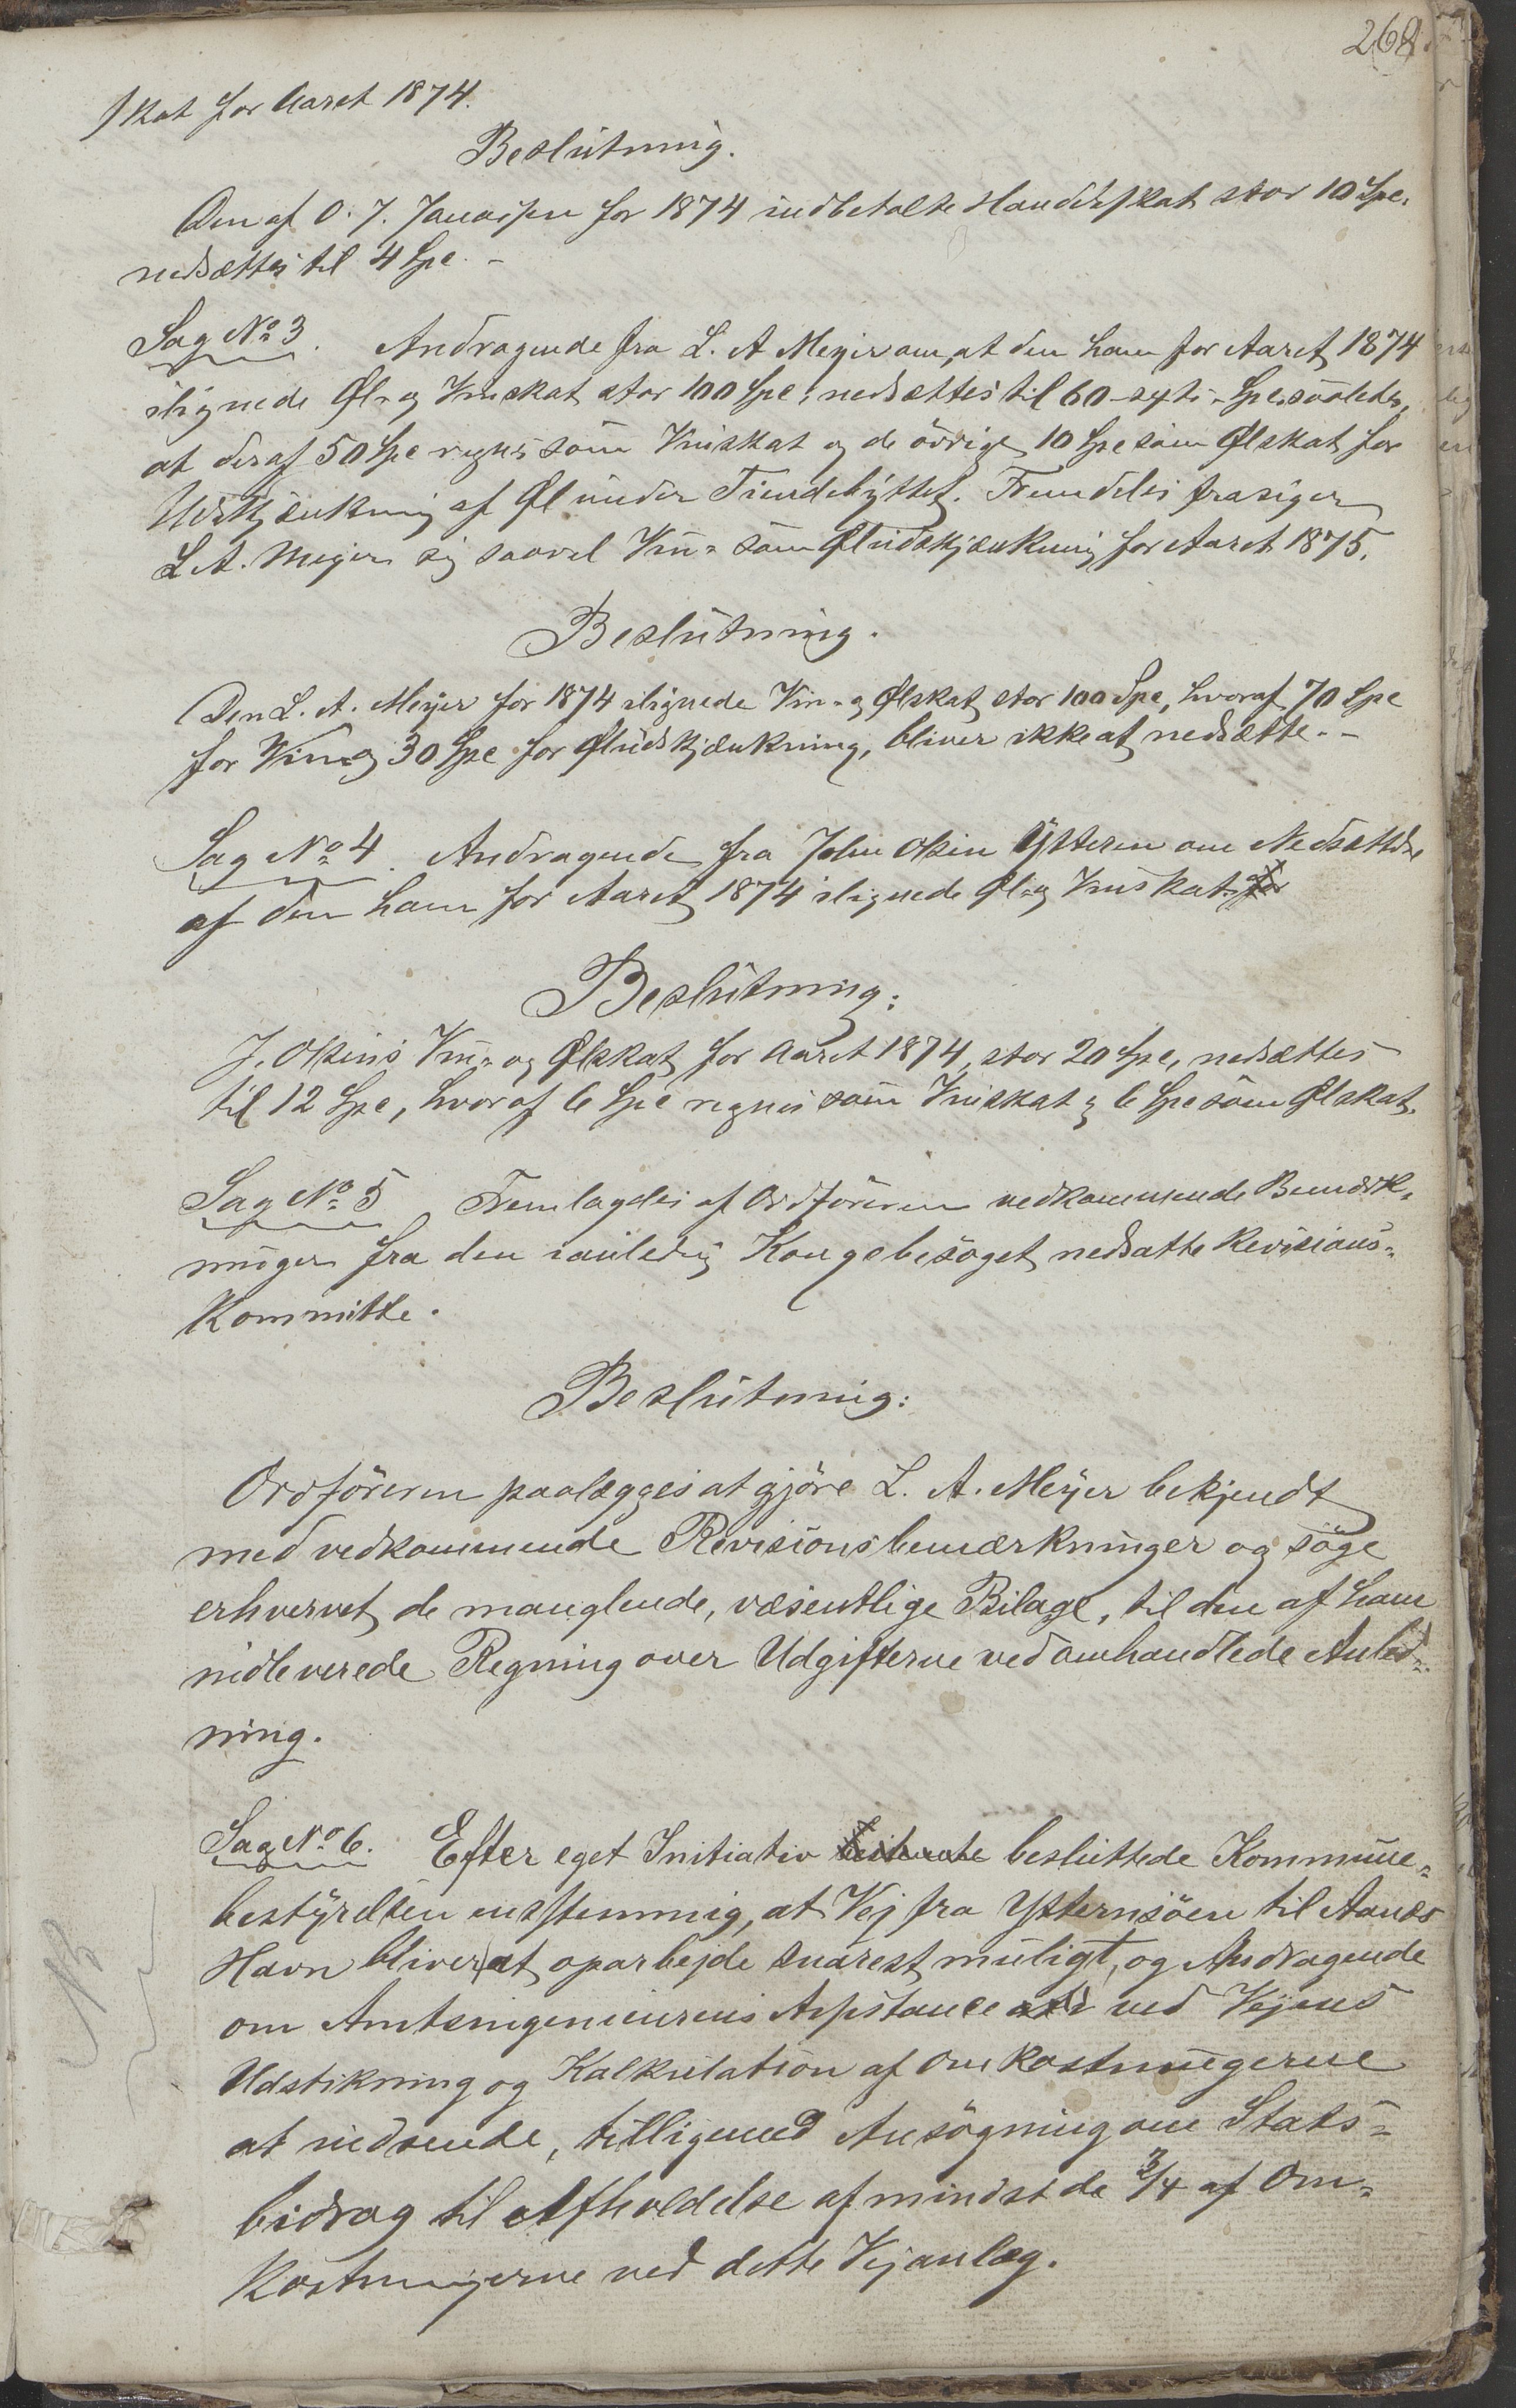 268
skat for Aaret 1874.
Beslutning.
Den af O. J. Janoisen for 1874 indbetalte Handelsskat stor 10 Spe.
nedsættes til 4 Spe. -
Sag No 3. Andragende fra L. A Meyer om, at den ham for Aaret 1874
ilignede Øl- og Vinskat stor 100 Spe, nedsættes til 60 - syti - Spe, saaledes,
at deraf 50 Spe regnes som Vinskat og de øvrige 10 Spe som Ølskat for
Udskjænkning af Øl under Tiendebyttet. Fremdeles frasiger
L A. Meyer sig saavel Vin- som Øludskjænkning for Aaret 1875.
Beslutning.
Den L. A. Meyer for 1874 ilignede Vin- og Ølskat, stor 100 Spe, hvoraf 70 Spe
for Vin og 30 Spe for Øludskjænkning, bliver ikke at nedsætte. -
Sag No 4. Andragende fra John Olsen Ytteren om Nedsættelse
af den ham for Aaret 1874 ilignede Øl- og Vinskat
Beslutning:
J. Olsens Vin- og Ølskat for Aaret 1874, stor 20 Spe, nedsættes
til 12 Spe, hvoraf 6 Spe regnes som Vinskat og 6 Spe som Ølskat.
Sag No 5 Fremlagdes af Ordføreren vedkommende Bemærk-
ninger fra den i anledning Kongebesøget nedsatte Revisions-
Kommitte.
Beslutning:
Ordføreren paalægges at gjøre L. A. Meyer bekjendt
med vedkommende Revisionsbemærkninger og søge
erhvervet de manglende, væsentlige Bilage, til den af ham
indleverede Regning over Udgifterne ved omhandlede Anled-
ning.
Sag No 6. Efter eget Initiativ besluttede Kommune-
bestyrelsen enstemmig, at Vej fra Ytternsøen til Aanæs
Havn bliver at oparbejde snarest muligt, og Andragende
om Amtsingenieurens Assistance ved Vejens
Udstikning og Kalkulation af Omkostningerne
at indsende, tilligemed Ansøgning om Stats-
bidrag til Afholdelse af mindst de 3/4 af Om-
kostningerne ved dette Vejanlæg.